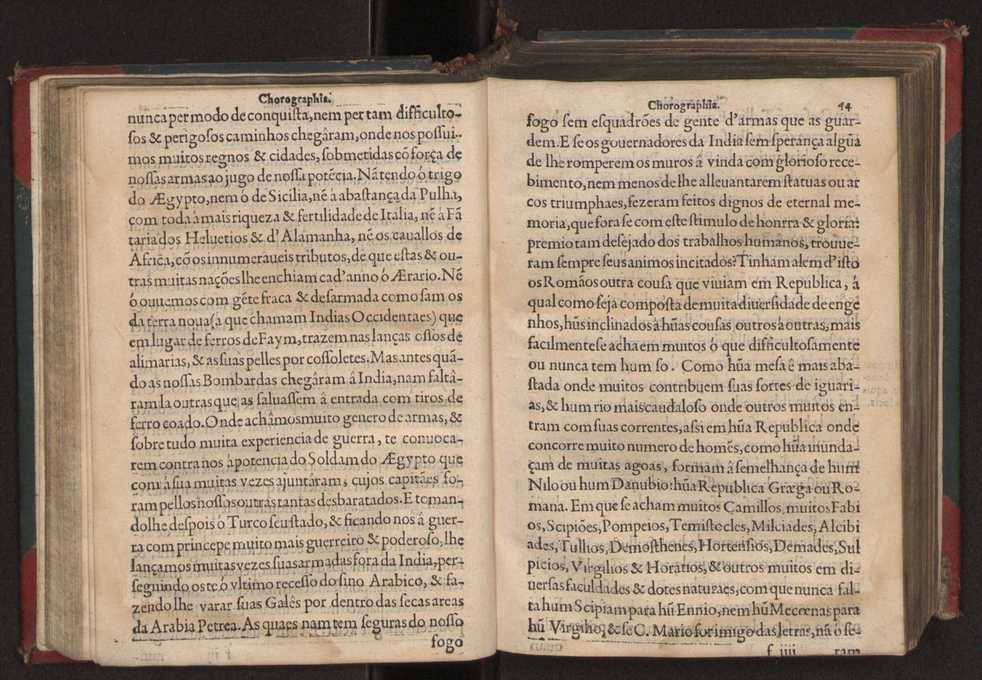 Chorographia.
nunca per modo de conquista, nem per tam difficulto-
sos & perigosos caminhos chegâram, onde nos possui-
mos muitos regnos & cidades, sobmetidas cõ força de
nossas armas ao jugo de nossa potẽcia. Nã tendo ô trigo
do Ægypto, nem ô de Sicilia, nẽ â abastança da Pulha,
com toda â mais riqueza & fertilidade de Italia, nẽ â Fã
taria dos Heluetios & d'Alamanha, nẽ os cauallos de
Africa, cõ os innumeraueis tributos, de que estas & ou-
tras muitas nações lhe enchiam cad'anno ô Ærario. Nẽ
ô ouuemos com gẽte fraca & desarmada como sam os
da terra noua (a que chamam Indias Occidentaes) que
em lugar de ferros de Faym, trazem nas lanças ossos de
alimarias, & as suas pelles por cossoletes. Mas antes quã-
do as nossas Bombardas chegâram â India, nam faltâ-
ram la outras que as saluassem â entrada com tiros de
ferro coado. Onde achâmos muito genero de armas, &
sobre tudo muita experiencia de guerra, te conuoca-
rem contra nos â potencia do Soldam do Ægypto que
com â sua muitas vezes ajuntâram, cujos capitães fo-
ram pellos nossos outras tantas desbaratados. E toman-
dolhe despois ô Turco seu stado, & ficando nos â guer-
ra com princepe muito mais guerreiro & poderoso, lhe
lançamos muitas vezes suas armadas fora da India, per-
seguindo os te ô vltimo recesso do sino Arabico, & fa-
zendo lhe varar suas Galês por dentro das secas areas
da Arabia Petrea. As quaes nam tem seguras do nosso
fogo
Chorographia. 94
fogo sem esquadrões de gente d'armas que as guar-
dem. E se os gouernadores da India sem sperança algũa
de lhe romperem os muros â vinda com glorioso rece-
bimento, nem menos de lhe alleuantarem statuas ou ar
cos triumphaes, fezeram feitos dignos de eternal me-
moria, que fora se com este stimulo de honrra & gloria:
premio tam desejado dos trabalhos humanos, trouue-
ram sempre seus animos incitados? Tinham alem d'isto
os Romãos outra cousa que viuiam em Republica, â
qual como seja composta de muita diuersidade de enge
nhos, hũs inclinados â hũas cousas outros â outras, mais
facilmente se acha em muitos ô que difficultosamente
ou nunca tem hum so. Como hũa mesa ê mais aba-
stada onde muitos contribuem suas sortes de iguari-
as, & hum rio mais caudaloso onde outros muitos en-
tram com suas correntes, assi em hũa Republica onde
concorre muito numero de homẽs, como hũa inunda-
çam de muitas agoas, formam â semelhança de hum
Nilo ou hum Danubio: hũa Republica Græga ou Ro-
mana. Em que se acham muitos Camillos, muitos Fabi
os, Scipiões, Pompeios, Temistocles, Milciades, Alcibi
ades, Tullios, Demosthenes, Hortensios, Demades, Sul
picios, Virgilios & Horatios, & outros muitos em di-
uersas faculdades & dotes naturaes, com que nunca fal-
ta hum Scipiam para hũ Ennio, nem hũ Mecœnas para
hũ Virgilio, & se C. Mario for imigo das letras, nã ô se-
f iiij ram